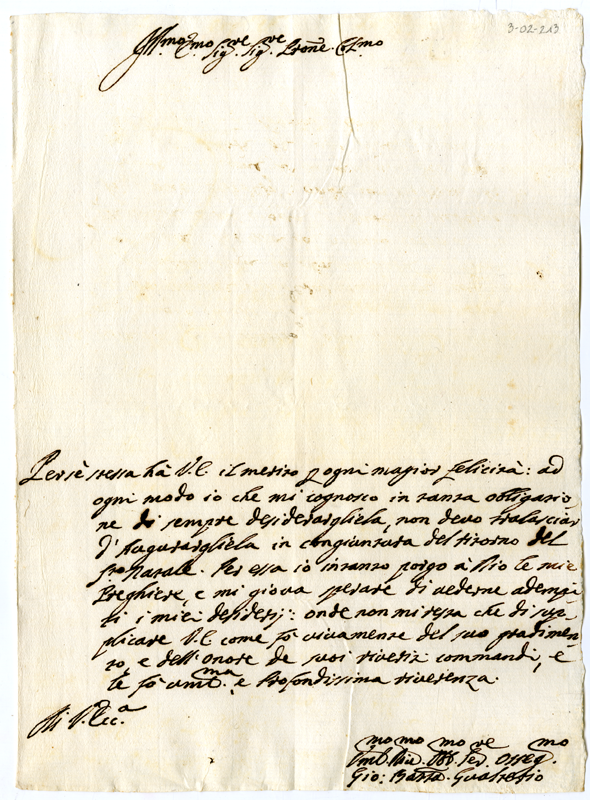 3-02-213
Ill.mo Ecc.mo Sig.re Sig.re Prone. Col.mo
Persè stessa hà V.E. il merito p ogni magior felicità: ad
ogni modo io che mi cognosco in tanta obligatio
ne di sempre desiderargliela, non devo tralasciar
d'Augurargliela in congiuntura del ritorno del
S.mo Natale. Per essa io intanto porgo à Dio le mie
Preghiere, e mi giova sperare di vederne adempi
ti i miei desiderij: onde non mi resta che di sup
plicare V.E. come fò vivamente del suo gradimen
to, e dell'onore de suoi riveriti commandi, e
le fò umil.ma e Profondissima riverenza.
Di V. Ecc.a
Uml.mo Div.mo Obb.mo Ser.re Osseq.mo
Gio: Batta.